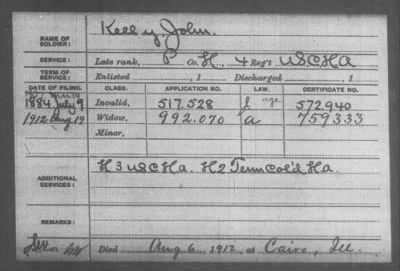 NAME OF SOLDIER: Kelly, John.
SERVICE: Late rank, P Co. H, 4 Reg't USCHA
TERM OF SERVICE: Enlisted , 1 Discharged , 1
DATE OF FILING. CLASS. APPLICATION NO. LAW. CERTIFICATE NO.
1884 July 9 Invalid, 517.528 age 572940
1912 Aug 19 Widow, 992.070 a 759333
Minor,
ADDITIONAL SERVICES: H 3 USCHa. H 2 Tenn Col'd Ha.
REMARKS:
Died Aug 6, 1912, at Cairo, Ill.